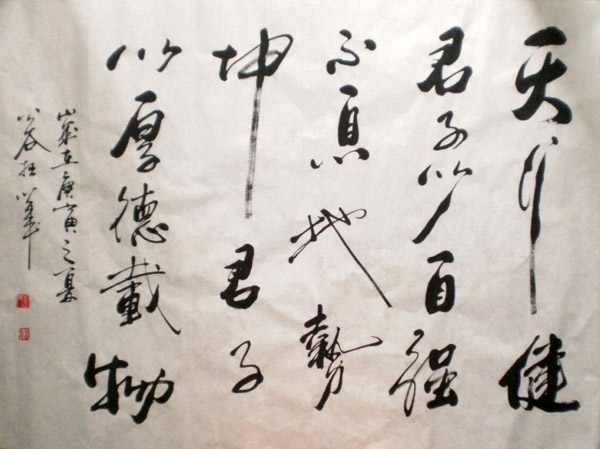 天行健
君子以自强
不息地势
坤君子
以厚德載物
岁在庚寅之夏